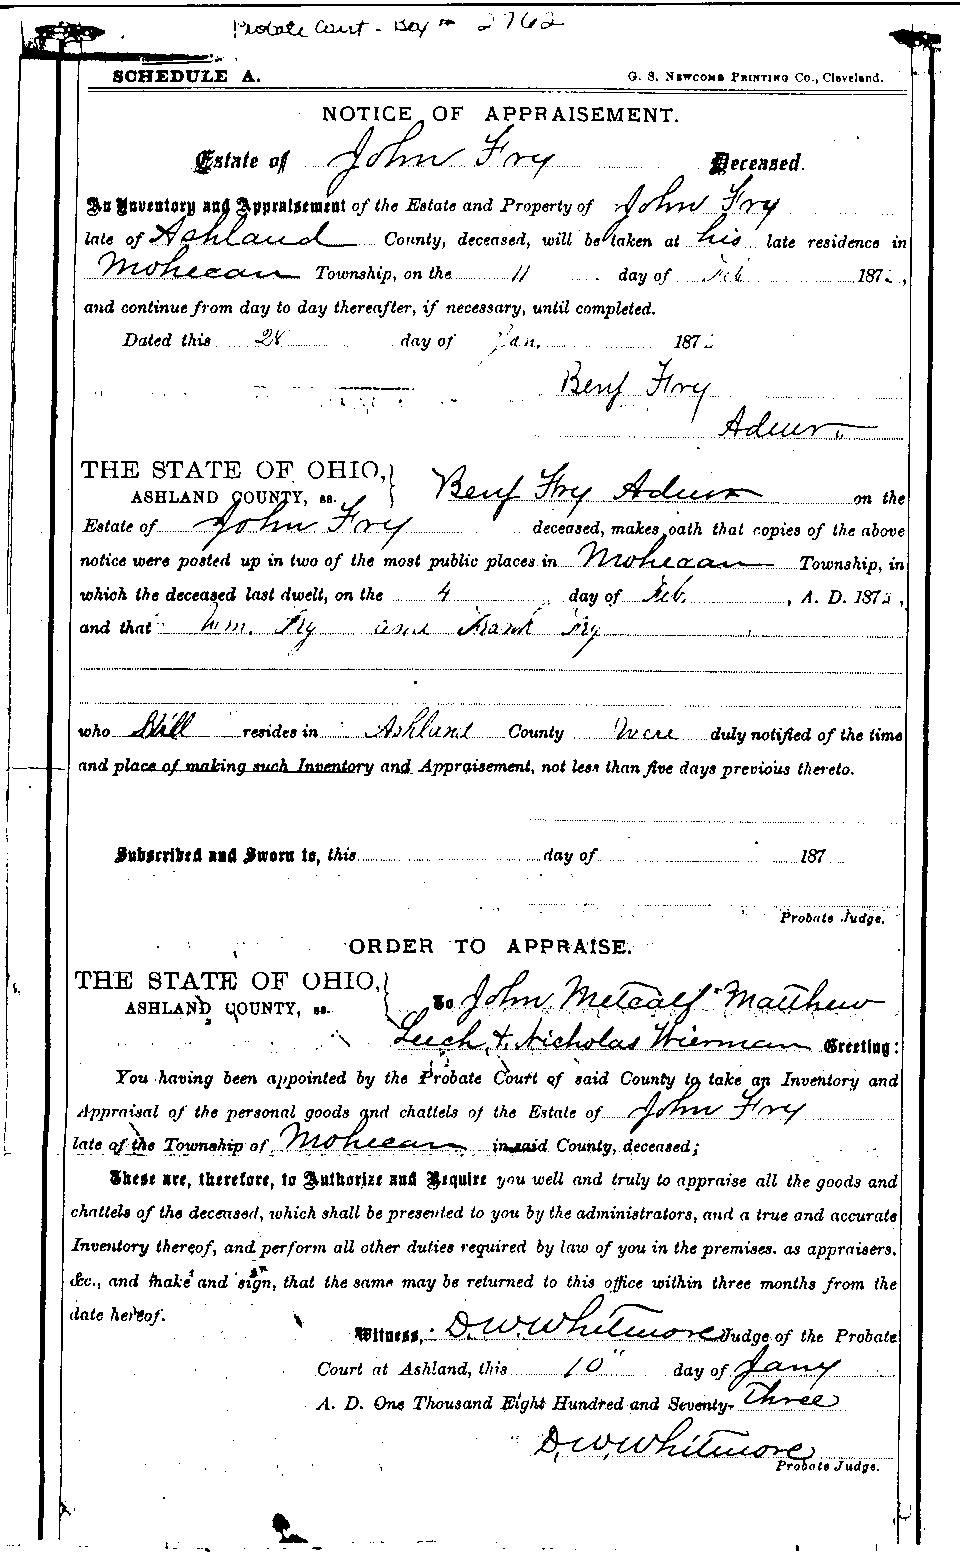 Probate Court - Box 2762
SCHEDULE A. G. S. NEWCOMB PRINTING CO., Cleveland.
NOTICE OF APPRAISEMENT.
Estate of John Fry Deceased.
An Inventory and Appraisement of the Estate and Property of John Fry
late of Ashland County, deceased, will be taken at his late residence in
Mohecan Township, on the 11 day of Feb 187 ,
and continue from day to day thereafter, if necessary, until completed.
Dated this 28 day of Jan. 187
Benj Fry
Admr.
THE STATE OF OHIO,
ASHLAND COUNTY, ss. Benj Fry Admr on the
Estate of John Fry deceased, makes oath that copies of the above
notice were posted up in two of the most public places in Mohecan Township, in
which the deceased last dwelt, on the 4 day of Feb. , A. D. 187 ,
and that Wm. Fry and Frank Fry
who Still resides in Ashland County were duly notified of the time
and place of making such Inventory and Appraisement, not less than five days previous thereto.
Subscribed and Sworn to, this day of 187
Probate Judge.
ORDER TO APPRAISE.
THE STATE OF OHIO,
ASHLAND COUNTY, ss. To John Metcalf Matthew
Leech & Nicholas Wierman Greeting:
You having been appointed by the Probate Court of said County to take an Inventory and
Appraisal of the personal goods and chattels of the Estate of John Fry
late of the Township of Mohecan in said County, deceased;
These are, therefore, to Authorize and Require you well and truly to appraise all the goods and
chattels of the deceased, which shall be presented to you by the administrators, and a true and accurate
Inventory thereof, and perform all other duties required by law of you in the premises. as appraisers.
&c., and make and sign, that the same may be returned to this office within three months from the
date hereof.
Witness, D. W. Whitmore Judge of the Probate
Court at Ashland, this 10" day of Jany
A. D. One Thousand Eight Hundred and Seventy- Three
D. W. Whitmore
Probate Judge.